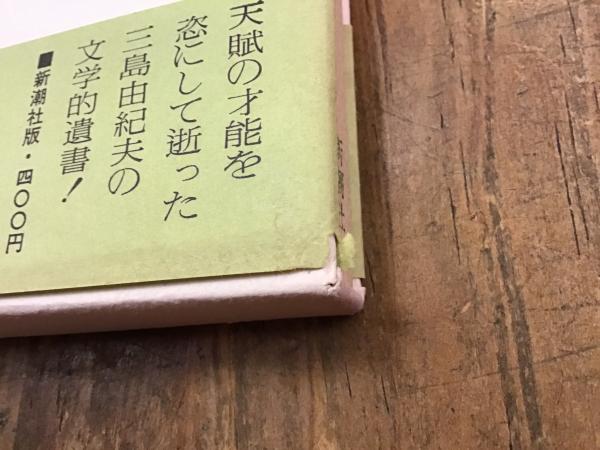 天賦の才能を
恣にして逝った
三島由紀夫の
文学的遺書!
■新潮社版・四〇〇円